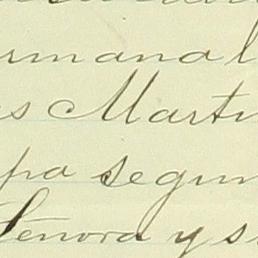 umana l
s Marti
pa segun
Señora y s